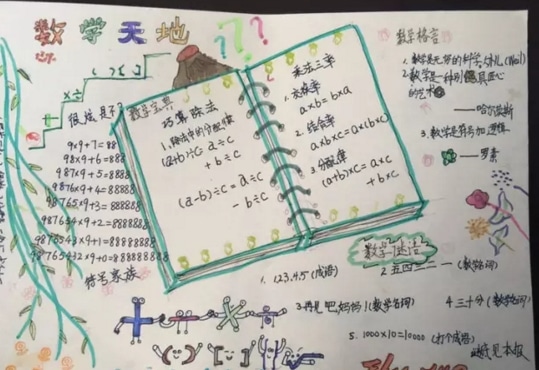 数学天地
( ) { }
×÷
很炫是不?
9×9+7=88
98×9+6=888
987×9+5=8888
9876×9+4=88888
98765×9+3=888888
987654×9+2=8888888
符号家族
数学宝典
巧算除法
1.除法中的分配律
(a+b)÷c=a÷c
+b÷c
(a-b)÷c=a÷c
-b÷c
乘法三率
1.交换率
a×b=b×a
2.结合率
a×b×c=a×(b×c)
3.分配律
(a+b)×c=a×c
+b×c
数学格言
2.数学是一种别具匠心
的艺术
——哈尔莫斯
3.数学是符号加逻辑
——罗素
数学谜语
1. 1,2,3,4,5 (成语)
2.五四三二一 (数学名词)
3.再见吧,妈妈! (数学名词)
4.三十分 (数学名词)
5. 1000×10=10000 (打个成语)
谜底见本报